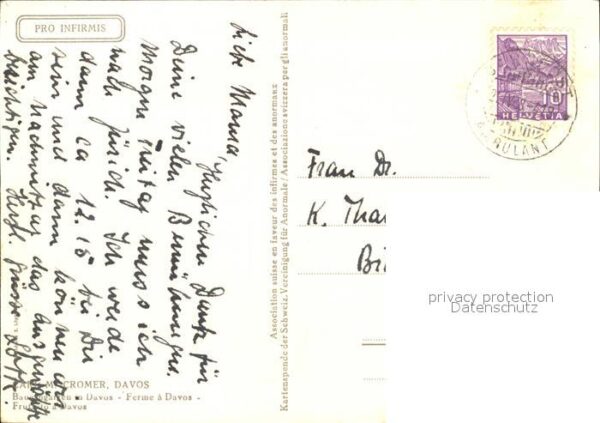 PRO INFIRMIS
Liebe Mama! Herzlichen Dank für
Deine vielen Bemühungen.
Morgen Freitag muss ich
nach Zürich. Ich werde
dann ca 12.15 bei Dir
sein und dann können wir
am Nachmittag das Ausgewählte
besichtigen. Herzl. Grüsse
CARL M. CROMER, DAVOS
Bauerngarten in Davos - Ferme à Davos -
Davos
Association suisse en faveur des infirmes et des anormaux
Kartenspende der Schweiz. Vereinigung für Anormale / Associazione svizzera per gli anormali
10
HELVETIA
AMBULANT
Frau Dr.
K. Thal
Bi
privacy protection
Datenschutz